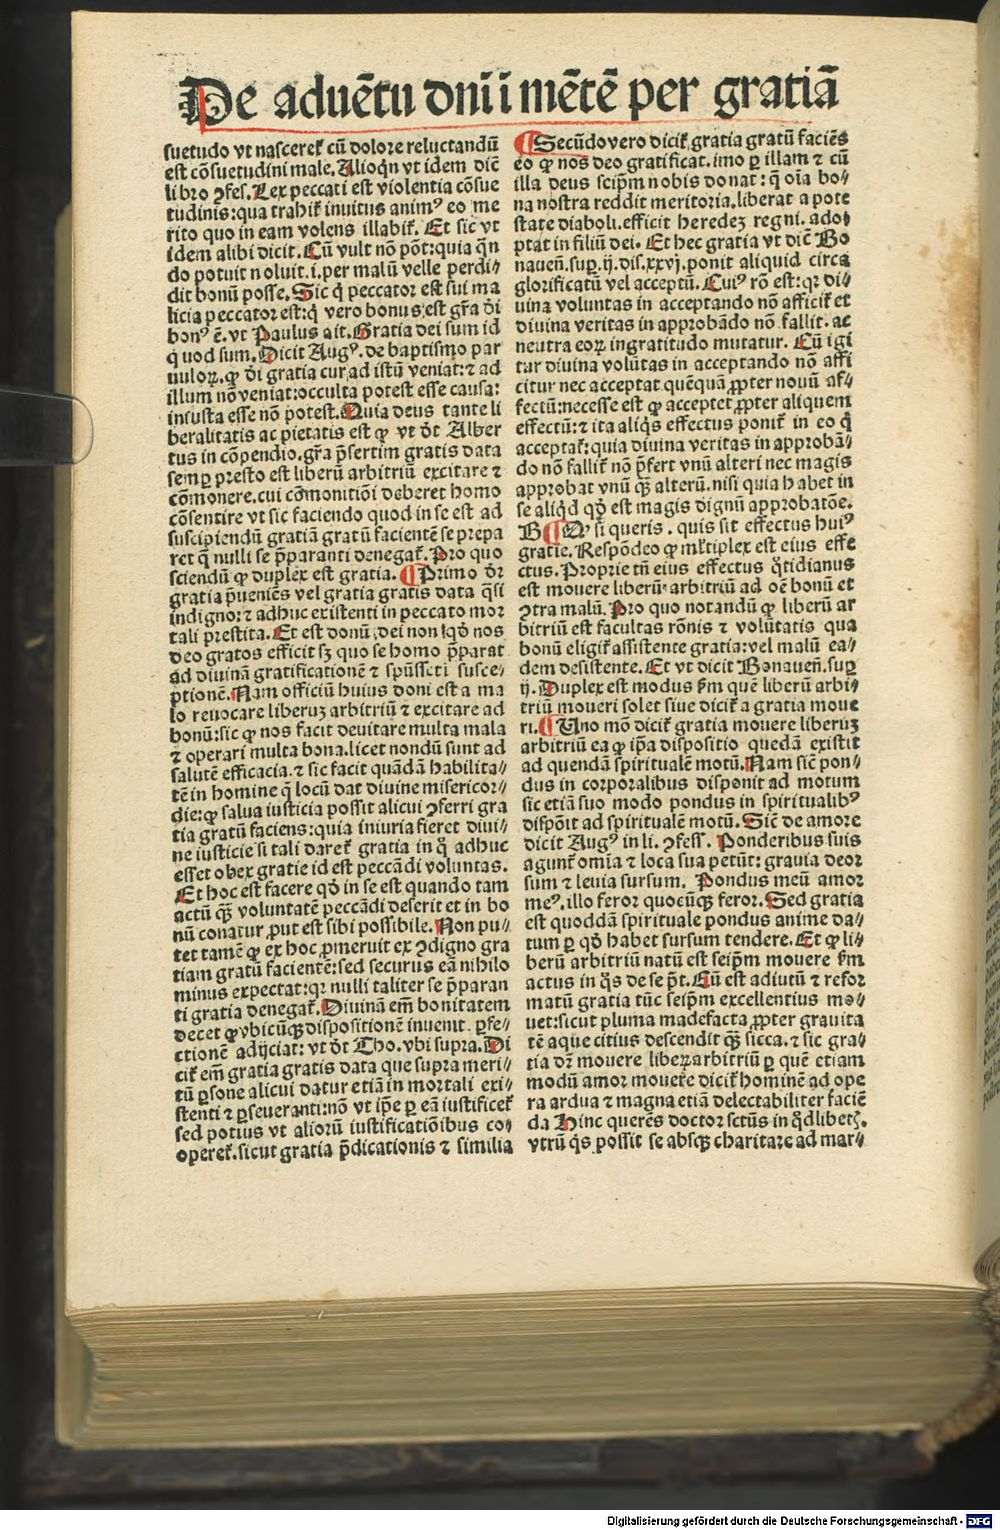 De aduētu dni i mētē per gratiā
suetudo vt nasceret᷑ cū dolore reluctandū
est cōsuetudini male. Alioqn̄ vt idem dic̄
libro ꝯfes. Lex peccati est violentia cōsue
tudinis: qua trahit᷑ inuitus animꝰ eo me
rito quo in eam volens illabit᷑. Et sic vt
idem alibi dicit. Cū vult nō pōt: quia qn̄
do potuit noluit .i. per malū velle perdi//
dit bonū posse. Sic q̇ peccator est sui ma
licia peccator est: q̇ vero bonus est gr̄a dei
bonꝰ ē. vt Paulus ait. Gratia dei sum id
quod sum. Dicit Augꝰ. de baptismo par
uuloꝝ. ꝙ dei gratia cur ad istū veniat: ⁊ ad
illum nō veniat: occulta potest esse causa:
iniusta esse nō potest. Quia deus tante li
beralitatis ac pietatis est ꝙ vt dt̄ Alber
tus in cōpendio. gr̄a p̄sertim gratis data
semꝑ presto est liberū arbitriū excitare ⁊
cōmonere. cui cōmonitiōi deberet homo
cōsentire vt sic faciendo quod in se est ad
suscipiendū gratiā gratū facientē se prepa
ret q̄ nulli se p̄paranti denegat᷑. Pro quo
sciendū ꝙ duplex est gratia. ¶ Primo dr̄
gratia p̄ueniēs vel gratia gratis data q̄si
indignoꝛ: ⁊ adhuc existenti in peccato mor
tali prestita. Et est donū dei non qd̓ nos
deo gratos efficit sꝫ quo se homo p̄parat
ad diuinā gratificationē ⁊ sp̄ūsscti susce//
ptionē. Nam officiū huius doni est a ma
lo reuocare liberuꝫ arbitriū ⁊ excitare ad
bonū: sic ꝙ nos facit deuitare multa mala
⁊ operari multa bona. licet nondū sunt ad
salutē efficacia. ⁊ sic facit quādā habilita//
tē in homine q̄ locū dat diuine misericor//
die: ꝙ salua iusticia possit alicui ꝯferri gra
tia gratū faciens: quia iniuria fieret diui//
ne iusticie si tali daret᷑ gratia in q̊ adhuc
esset obex gratie id est peccādi voluntas.
Et hoc est facere qd̓ in se est quando tam
actū qꝫ voluntatē peccādi deserit et in bo
nū conatur ꝓut est sibi possibile. Non pu//
tet tamē ꝙ ex hoc ꝓmeruit ex ꝯdigno gra
tiam gratū facientē: sed securus eā nihilo
minus expectat: qꝛ nulli taliter se p̄paran
ti gratia denegat᷑. Diuinā em̄ bonitatem
decet ꝙ vbicūqꝫ dispositionē inuenit. ꝑfe//
ctionē adijciat: vt dt̄ Tho. vbi supra. Di
cit᷑ em̄ gratia gratis data que supra meri//
tū ꝑsone alicui datur etiā in mortali exi//
stenti ⁊ ꝑseueranti: nō vt ip̄e ꝑ eā iustificet᷑
sed potius vt alioꝛū iustificatiōibus co//
operet᷑. sicut gratia p̄dicationis ⁊ similia
¶ Secūdo vero dicit᷑ gratia gratū faciēs
eo ꝙ nos deo gratificat. imo ꝑ illam ⁊ cū
illa deus seip̄m nobis donat: q̄ oīa bo//
na nostra reddit meritoria. liberat a pote
state diaboli. efficit heredeꝫ regni. ado//
ptat in filiū dei. Et hec gratia vt dic̄ Bo
nauen̄. suꝑ .ij. dis. xxvj. ponit aliquid circa
glorificatū vel acceptū. Cuiꝰ rō est: qꝛ di//
uina voluntas in acceptando nō afficit᷑ et
diuina veritas in approbādo nō fallit. ac
neutra eoꝝ ingratitudo mutatur. Cū igi
tur diuina volūtas in acceptando nō affi
citur nec acceptat quēquā ꝓpter nouū af//
fectū: necesse est ꝙ acceptet ꝓpter aliquem
effectū: ⁊ ita aliq̄s effectus ponit᷑ in eo q̄
acceptat᷑: quia diuina veritas in approbā//
do nō fallit᷑ nō p̄fert vnū alteri nec magis
approbat vnū qꝫ alterū. nisi quia habet in
se aliqd̓ qd̓ est magis dignū approbatōe.
B ¶ Et si queris. quis sit effectus huiꝰ
gratie. Respōdeo ꝙ ml̓tiplex est eius effe
ctus. Proprie tn̄ eius effectus q̊tidianus
est mouere liberū arbitriū ad oē bonū et
ꝯtra malū. Pro quo notandū ꝙ liberū ar
bitriū est facultas rōnis ⁊ volūtatis qua
bonū eligit᷑ assistente gratia: vel malū ea//
dem desistente. Et vt dicit Bonauen̄. suꝑ
ij. Duplex est modus ẜm quē liberū arbi//
triū moueri solet siue dicit᷑ a gratia moue
ri. ¶ Uno mō dicit᷑ gratia mouere liberuꝫ
arbitriū ea ꝙ ip̄a dispositio quedā existit
ad quendā spiritualē motū. Nam sic̄ pon//
dus in corporalibus disponit ad motum
sic etiā suo modo pondus in spiritualibꝰ
dispōit ad spiritualē motū. Sic̄ de amore
dicit Augꝰ in li. ꝯfess. Ponderibus suis
agunt᷑ omīa ⁊ loca sua petūt: grauia deor
sum ⁊ leuia sursum. Pondus meū amor
meꝰ. illo feror quocūqꝫ feror. Sed gratia
est quoddā spirituale pondus anime da//
tum ꝑ qd̓ habet sursum tendere. Et ꝙ li//
berū arbitriū natū est seip̄m mouere ẜm
actus in q̊s de se p̄t. Cū est adiutū ⁊ refor
matū gratia tūc seip̄m excellentius mo//
uet: sicut pluma madefacta ꝓpter grauita
tē aque citius descendit qꝫ sicca. ⁊ sic gra//
tia dr̄ mouere libeꝝ arbitriū ꝑ quē etiam
modū amor mouere dicit᷑ hominē ad ope
ra ardua ⁊ magna etiā delectabiliter faciē
da Hinc queres doctor sctūs in q̊dlibetꝭ.
vtrū q̄s possit se absqꝫ charitate ad mar//
Digitalisierung gefördert durch die Deutsche Forschungsgemeinschaft - DFG